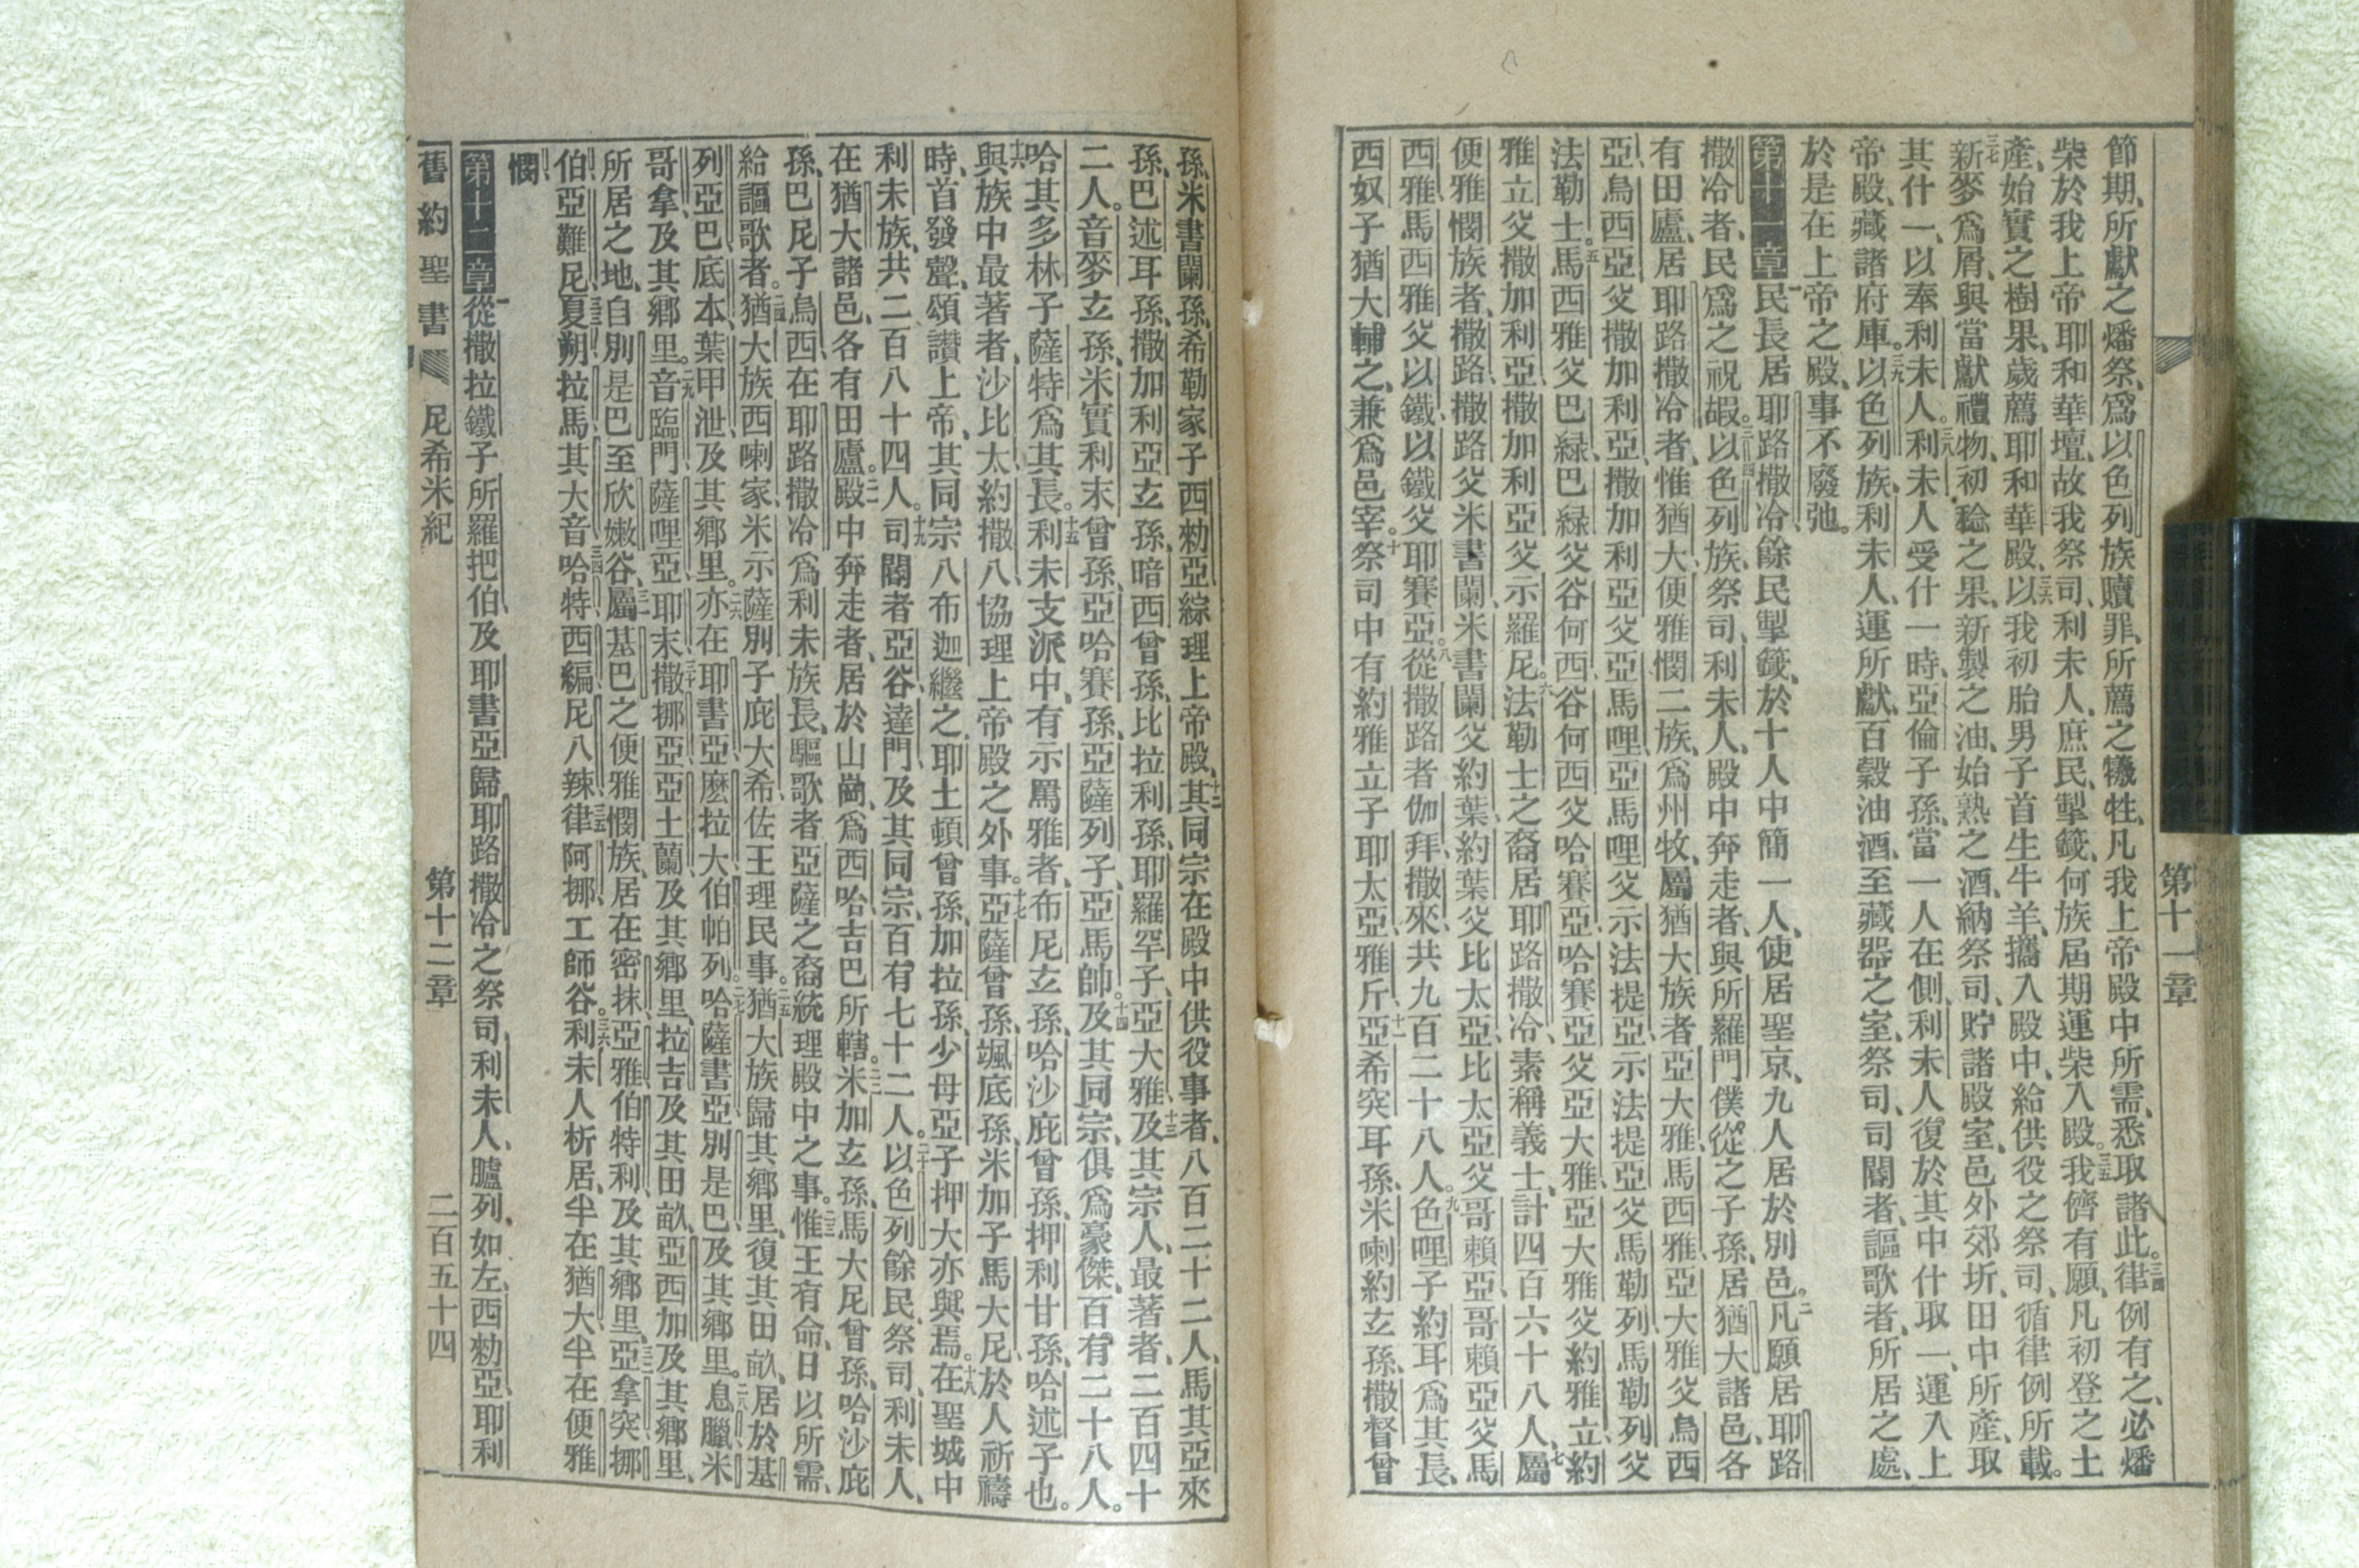 第十一章
節期、所獻之燔祭、爲以色列族贖罪、所薦之犧牲、凡我上帝殿中所需、悉取諸此。三四律例有之、必燔
柴於我上帝耶和華壇、故我祭司、利未人、庶民、掣籤、何族屆期運柴入殿。三五我儕有願、凡初登之土
產、始實之樹果、歲薦耶和華殿、三六以我初胎男子、首生牛羊、攜入殿中、給供役之祭司、循律例所載。
三七新麥爲屑、與當獻禮物、初稔之果、新製之油、始熟之酒、納祭司、貯諸殿室、邑外郊圻、田中所產、取
其什一、以奉利未人。三八利未人受什一時、亞倫子孫、當一人在側、利未人復於其中什取一、運入上
帝殿、藏諸府庫。三九以色列族、利未人、運所獻、百穀油酒、至藏器之室、祭司、司閽者、謳歌者、所居之處、
於是在上帝之殿、事不廢弛。
第十一章一民長居耶路撒冷、餘民掣籤、於十人中簡一人、使居聖京、九人居於別邑。二凡願居耶路
撒冷者、民爲之祝嘏。三四以色列族、祭司、利未人、殿中奔走者、與所羅門僕從之子孫、居猶大諸邑、各
有田廬、居耶路撒冷者、惟猶大、便雅憫二族、爲州牧、屬猶大族者、亞大雅、馬西雅、亞大雅父烏西
亞、烏西亞父撒加利亞、撒加利亞父亞馬哩、亞馬哩父示法提亞、示法提亞父馬勒列、馬勒列父
法勒士。五馬西雅父巴緑、巴緑父谷何西、谷何西父哈賽亞、哈賽亞父亞大雅、亞大雅父約雅立、約
雅立父撒加利亞、撒加利亞父示羅尼。六法勒士之裔居耶路撒冷、素稱義士、計四百六十八人、七屬
便雅憫族者、撒路、撒路父米書闌、米書闌父約葉、約葉父比太亞、比太亞父哥賴亞、哥賴亞父馬
西雅、馬西雅父以鐵、以鐵父耶賽亞。八從撒路者伽拜、撒來、共九百二十八人。九色哩子約耳爲其長、
西奴子猶大輔之、兼爲邑宰。十祭司中有約雅立子耶太亞、雅斤、十一亞希突耳孫、米喇約玄孫、撒督曾
孫、米書闌孫、希勒家子西勑亞、綜理上帝殿、十二其同宗在殿中供役事者、八百二十二人、馬其亞來
孫、巴述耳孫、撒加利亞玄孫、暗西曾孫、比拉利孫、耶羅罕子、亞大雅、十三及其宗人、最著者、二百四十
二人。音麥玄孫、米實利末曾孫、亞哈賽孫、亞薩列子、亞馬帥。十四及其同宗、俱爲豪傑、百有二十八人。
哈其多林子薩特爲其長。十五利未支派中、有示罵雅者、布尼玄孫、哈沙庇曾孫、押利甘孫、哈述子也。
十六與族中最著者、沙比太、約撒八、協理上帝殿之外事。十七亞薩曾孫、颯底孫、米加子馬大尼、於人祈禱
時、首發聲、頌讚上帝、其同宗八布迦繼之、耶土頓曾孫、加拉孫、少母亞子押大亦與焉。十八在聖城中
利未族、共二百八十四人。十九司閽者亞谷、達門、及其同宗、百有七十二人。二十以色列餘民、祭司、利未人、
在猶大諸邑、各有田廬。二一殿中奔走者、居於山崗、爲西哈、吉巴所轄。二二米加玄孫、馬大尼曾孫、哈沙庇
孫、巴尼子、烏西、在耶路撒冷、爲利未族長、謳歌者亞薩之裔、統理殿中之事。二三惟王有命、日以所需、
給謳歌者。二四猶大族西喇家、米示薩別子庇大希、佐王理民事。二五猶大族歸其鄉里、復其田畝、居於基
列亞巴、底本、葉甲泄、及其鄉里。二六亦在耶書亞、麽拉大、伯帕列。二七哈薩書亞、別是巴、及其鄉里。二八息臘、米
哥拿、及其鄉里。二九音臨門、薩哩亞、耶末、三十撒挪亞、亞土蘭、及其鄉里、拉吉、及其田畝、亞西加、及其鄉里、
所居之地、自別是巴、至欣嫩谷、三一屬基巴之便雅憫族、居在密抹、亞雅、伯特利、及其鄉里、三二亞拿突、挪
伯、亞難尼、三三夏朔、拉馬、其大音、三四哈特、西編、尼八辣、三五律、阿挪、工師谷。三六利未人析居、半在猶大、半在便雅
憫。
第十二章一從撒拉鐵子所羅把伯、及耶書亞、歸耶路撒冷之祭司利未人、臚列如左、西勑亞、耶利
舊約聖書 尼希米紀 第十二章 二百五十四